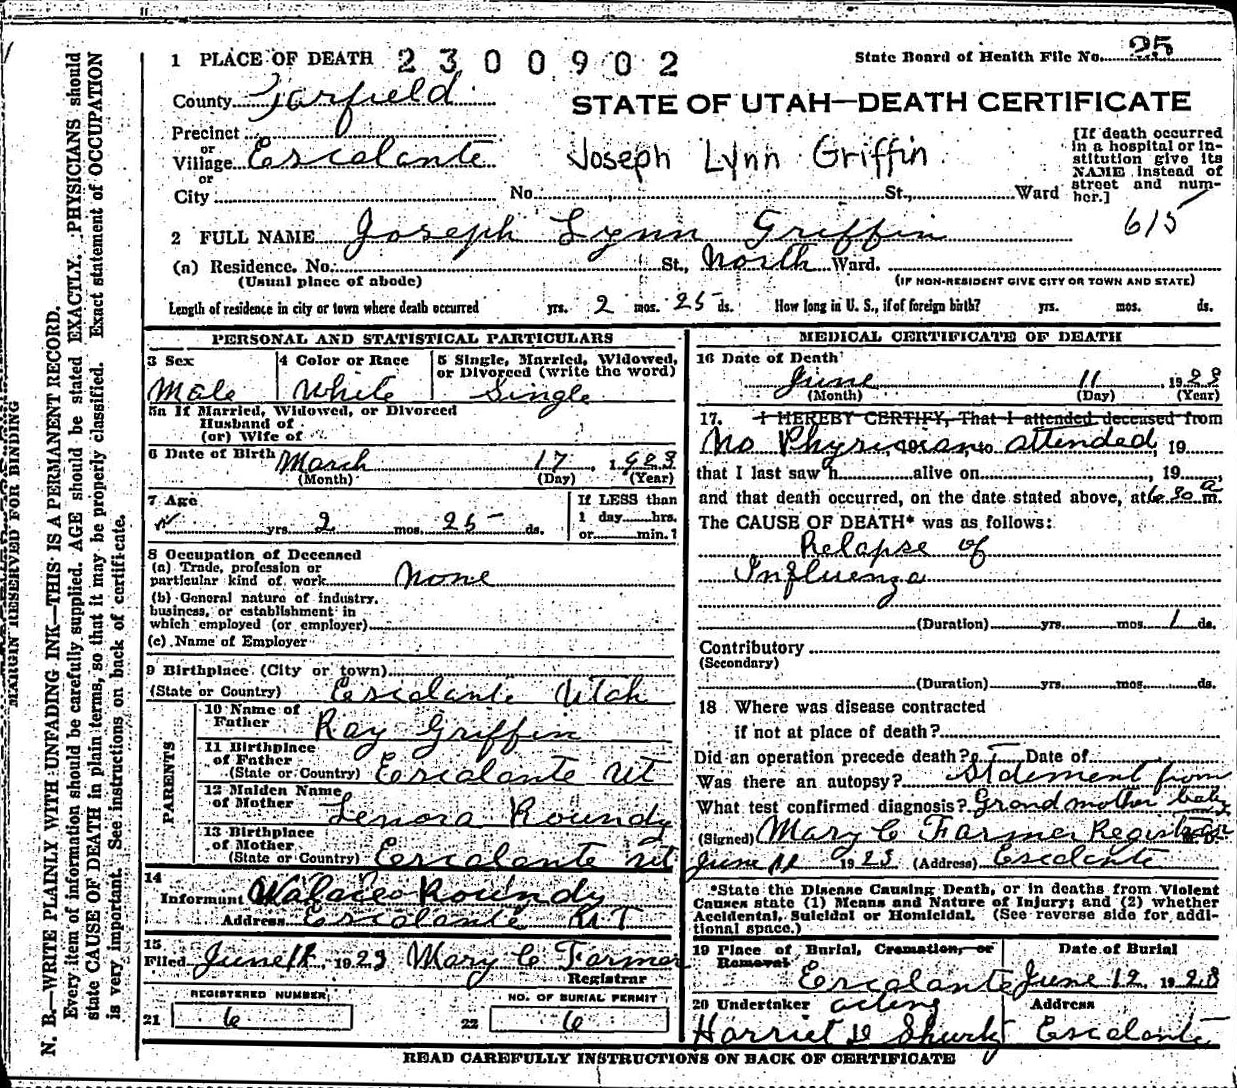 1 PLACE OF DEATH 2300902
State Board of Health File No. 25
County Garfield
STATE OF UTAH—DEATH CERTIFICATE
Precinct
or
Village Escalante
Joseph Lynn Griffin
[If death occurred in a hospital or institution give its NAME instead of street and number.]
or
City No. St., Ward
615
2 FULL NAME Joseph Lynn Griffin
(a) Residence. No. St., North Ward.
(Usual place of abode) (IF NON-RESIDENT GIVE CITY OR TOWN AND STATE)
Length of residence in city or town where death occurred yrs. 2 mos. 25 ds. How long in U. S., if of foreign birth? yrs. mos. ds.
PERSONAL AND STATISTICAL PARTICULARS
3 Sex Male
4 Color or Race White
5 Single, Married, Widowed, or Divorced (write the word) Single
5a If Married, Widowed, or Divorced
Husband of
(or) Wife of
6 Date of Birth March 17, 1923
(Month) (Day) (Year)
7 Age
yrs. 2 mos. 25 ds.
If LESS than
1 day hrs.
or min.?
8 Occupation of Deceased
(a) Trade, profession or
particular kind of work none
(b) General nature of industry,
business, or establishment in
which employed (or employer)
(c) Name of Employer
9 Birthplace (City or town)
(State or Country) Escalante Utah
PARENTS
10 Name of Father Ray Griffin
11 Birthplace of Father
(State or Country) Escalante Ut
12 Maiden Name of Mother Lenora Roundy
13 Birthplace of Mother
(State or Country) Escalante Ut
14
Informant Walace Roundy
Address Escalante UT
15
Filed June 12, 1923 Mary C Farmer
Registrar
REGISTERED NUMBER NO. OF BURIAL PERMIT
21 6 22 6
MEDICAL CERTIFICATE OF DEATH
16 Date of Death
June 11, 1923
(Month) (Day) (Year)
17. I HEREBY CERTIFY, That I attended deceased from
No Physician to attended, 19
that I last saw h alive on , 19 ,
and that death occurred, on the date stated above, at 6 30 a m.
The CAUSE OF DEATH* was as follows:
Relapse of
Influenza
(Duration) yrs. mos. 1 ds.
Contributory
(Secondary)
(Duration) yrs. mos. ds.
18 Where was disease contracted
if not at place of death?
Did an operation precede death? Date of
Was there an autopsy? Statement from
What test confirmed diagnosis? Grand mother baby
(Signed) Mary C Farmer Registrar
June 12 1923 (Address) Escalante
*State the Disease Causing Death, or in deaths from Violent
Causes state (1) Means and Nature of Injury; and (2) whether
Accidental, Suicidal or Homicidal. (See reverse side for addi-
tional space.)
19 Place of Burial, Cremation, or Removal Escalante
Date of Burial June 12 1923
20 Undertaker acting
Harriet
Address Escalante
READ CAREFULLY INSTRUCTIONS ON BACK OF CERTIFICATE
MARGIN RESERVED FOR BINDING
N. B.—WRITE PLAINLY WITH UNFADING INK—THIS IS A PERMANENT RECORD.
Every item of information should be carefully supplied. AGE should be stated EXACTLY. PHYSICIANS should
state CAUSE OF DEATH in plain terms, so that it may be properly classified. Exact statement of OCCUPATION
is very important. See instructions on back of certificate.